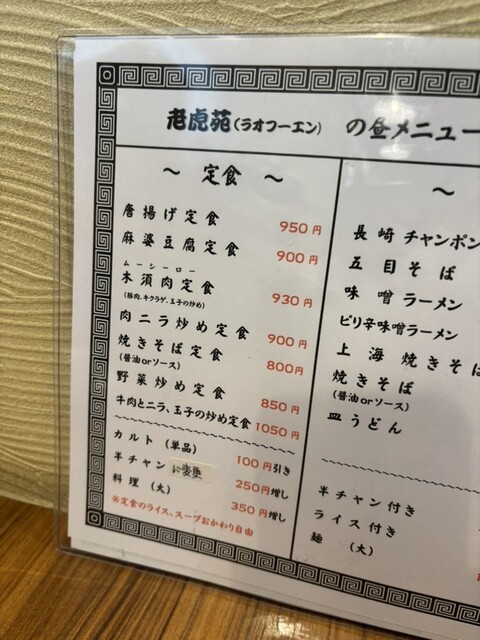 老虎苑(ラオフーエン) の昼メニュー
～ 定食 ～
唐揚げ定食 950円
麻婆豆腐定食 900円
ムーシーロー
木須肉定食 930円
(豚肉、キクラゲ、玉子の炒め)
肉ニラ炒め定食 900円
焼きそば定食 800円
(醤油orソース)
野菜炒め定食 850円
牛肉とニラ、玉子の炒め定食 1050円
カルト (単品) 100円引き
半チャンに変更 250円増し
料理 (大) 350円増し
※定食のライス、スープおかわり自由
～
長崎チャンポン
五目そば
味噌ラーメン
ピリ辛味噌ラーメン
上海焼きそ
焼きそば
(醤油orソース)
皿うどん
半チャン付き
ライス付き
麺 (大)